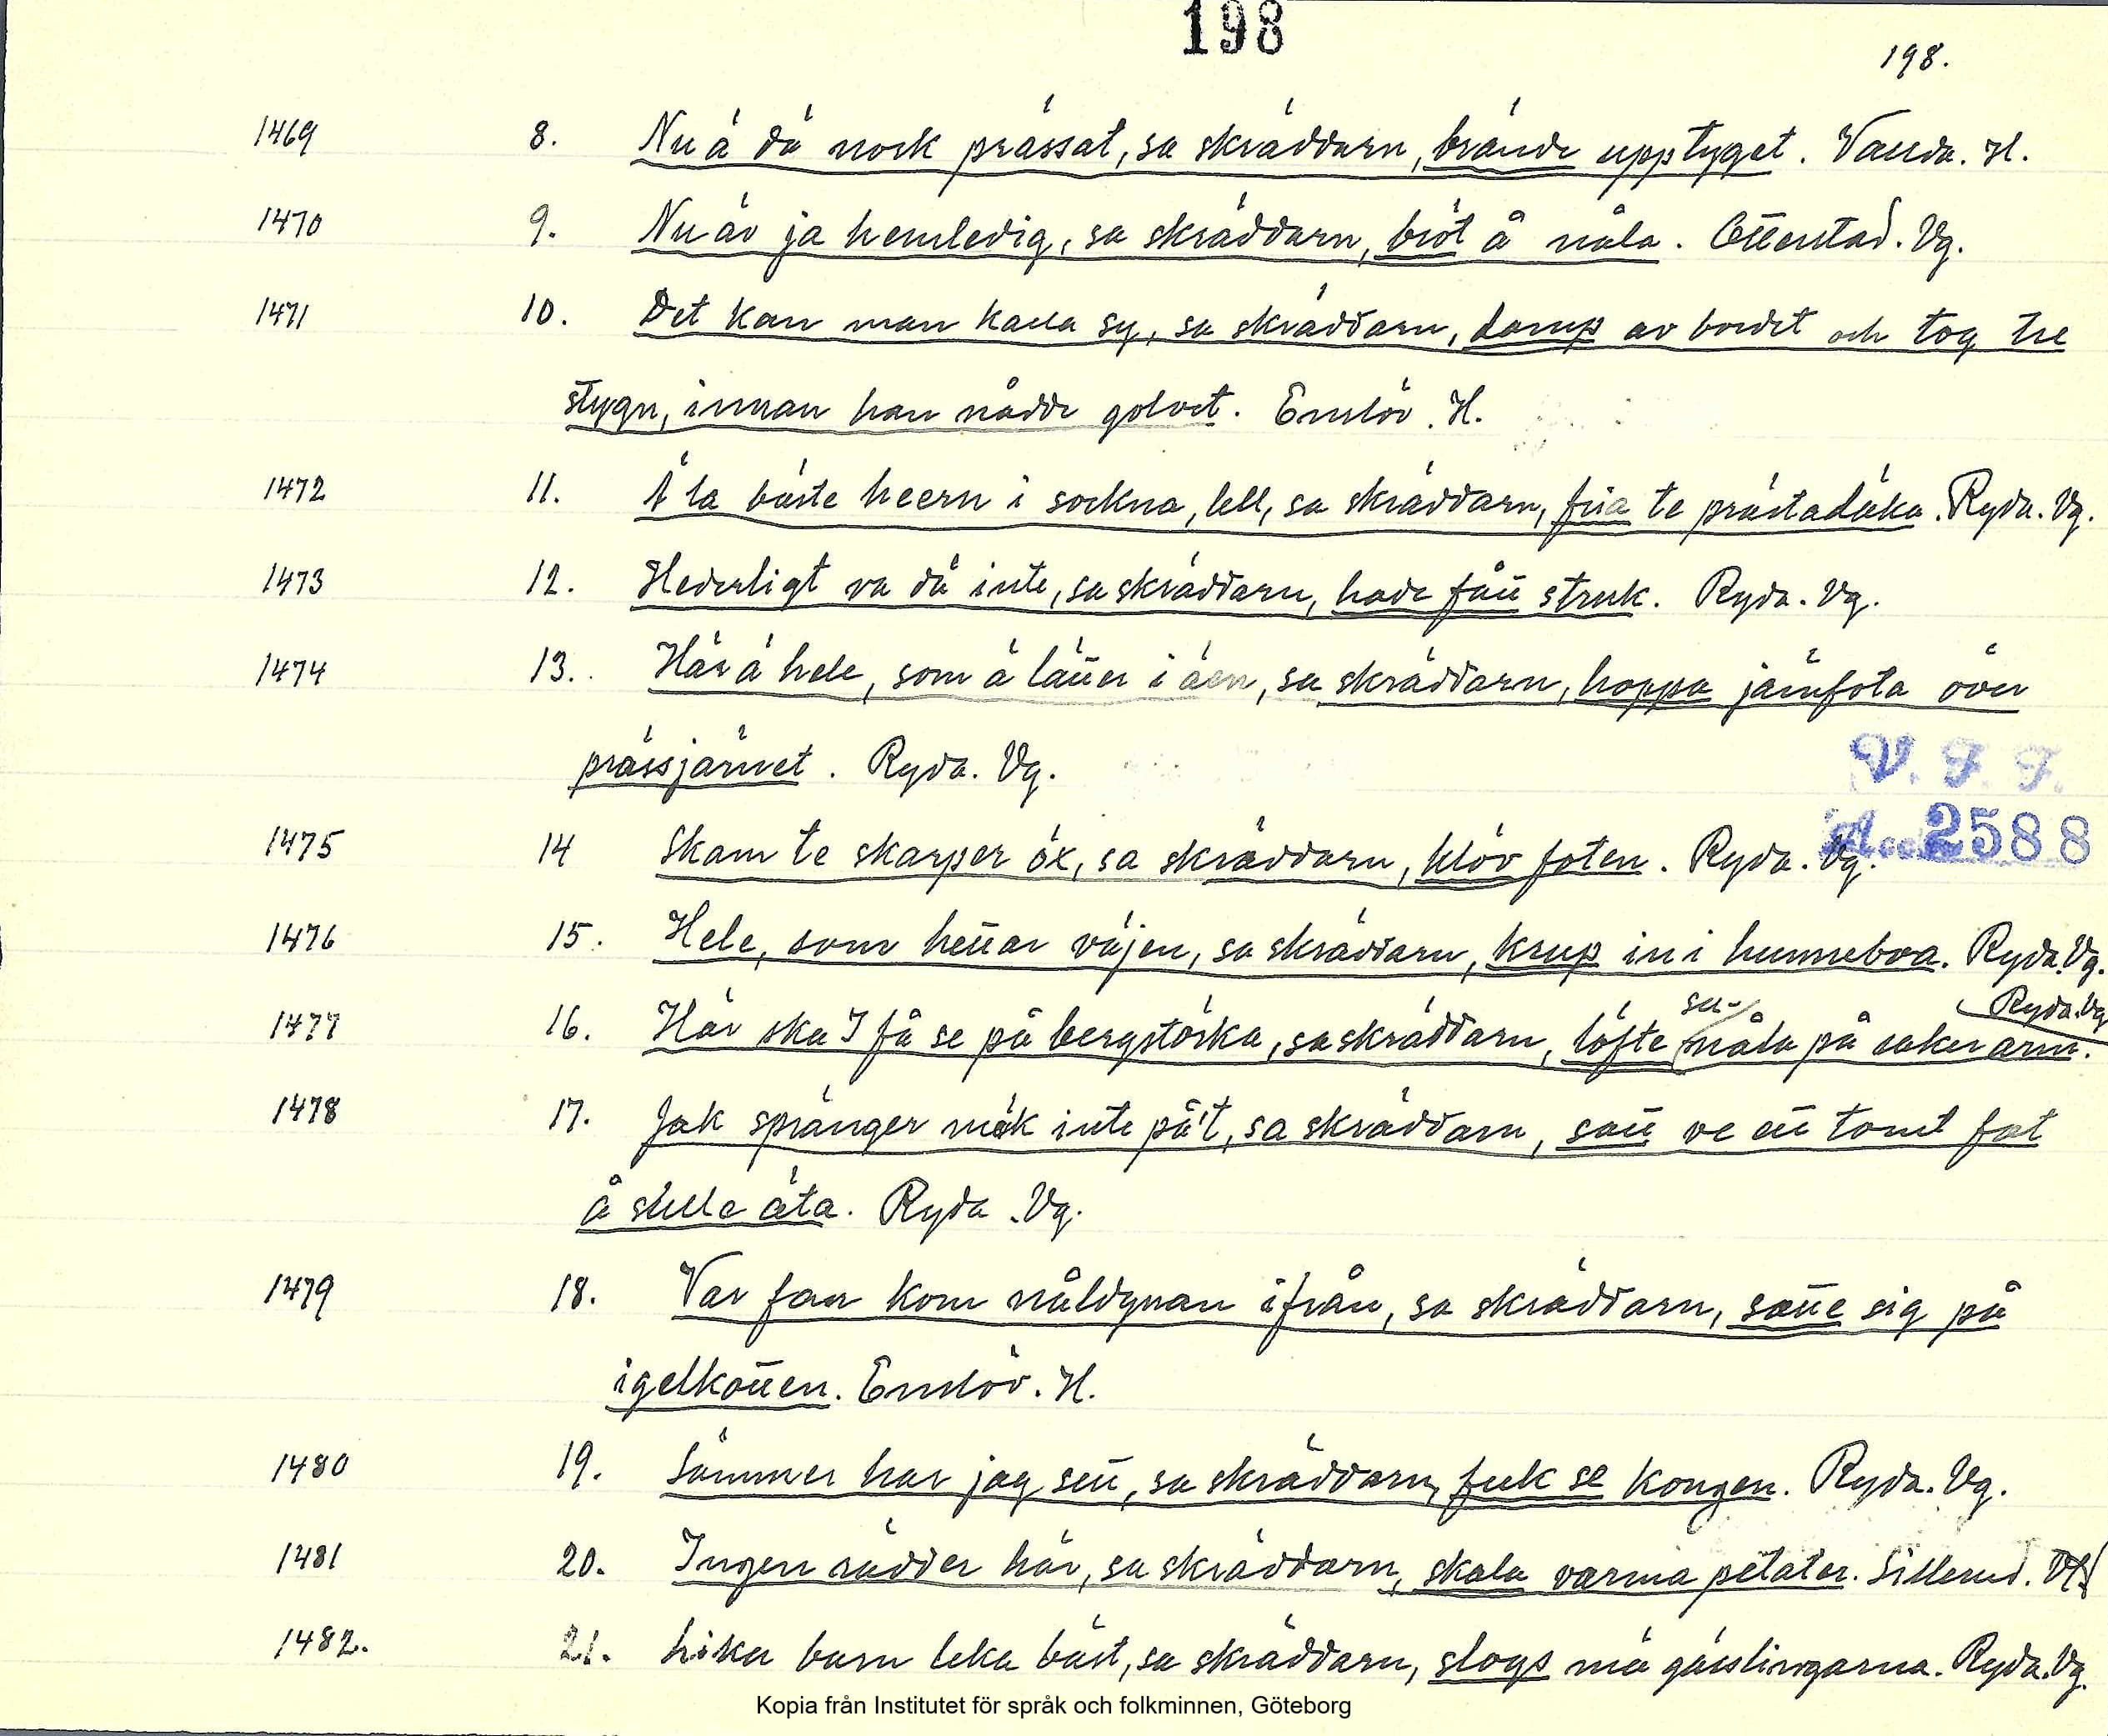 198
198.
1469 8. Nu ä dä nock prässat, sa skräddarn, brände upp tyget. Vanda. H.
1470 9. Nu är ja hemledig, sa skräddarn, bröt å nåla. Ottenstad. Vg.
1471 10. Det kan man kalla sy, sa skräddarn, damp av bordet och tog tre
stygn, innan han nådde golvet. Enslöv. H.
1472 11. Ä la bäste heern i sockna, lell, sa skräddarn, fria te prästadäka. Ryda. Vg.
1473 12. Hederligt va dä inte, sa skräddarn, hade fått struk. Ryda. Vg.
1474 13. Här ä hele, som ä lätter i äen, sa skräddarn, hoppa jämfota över
prässjärnet. Ryda. Vg.
V. F. F.
Acc. 2588
1475 14 Skam te skarper öx, sa skräddarn, klöv foten. Ryda. Vg.
1476 15. Hele, som hettar väjen, sa skräddarn, krup in i hunneboa. Ryda. Vg.
1477 16. Här ska I få se på bergstörka, sa skräddarn, löfte sy-nåla på raker arm. Ryda. Vg
1478 17. Jak spränger mäk inte på't, sa skräddarn, satt ve ett tomt fat
å skulle äta. Ryda. Vg.
1479 18. Var fan kom nåldynan ifrån, sa skräddarn, satte sig på
igelkotten. Enslöv. H.
1480 19. Sämmer har jag sett, sa skräddarn, fick se kongen. Ryda. Vg.
1481 20. Ingen rädder här, sa skräddarn, skala varma petater. Sillerud.
1482. 21. Lika barn leka bäst, sa skräddarn, slogs mä gässlingarna. Ryda. Vg.
Kopia från Institutet för språk och folkminnen, Göteborg